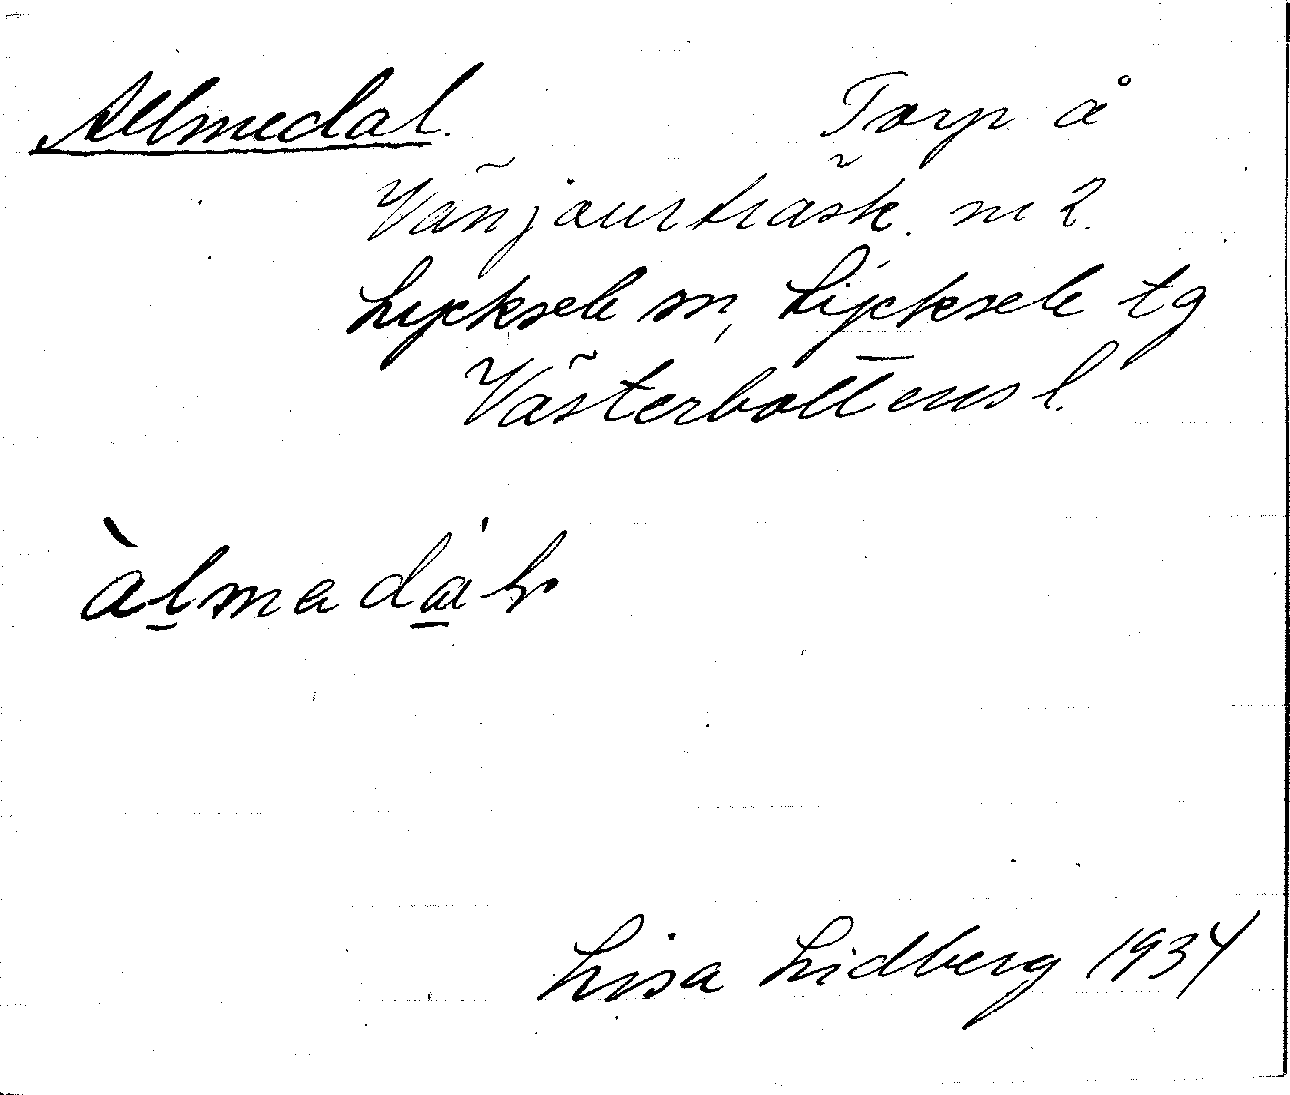 Almedal. Torp å
Vänjaurträsk. nr 2.
Lycksele sn, Lycksele tg
Västerbottens l.
àlmadá
Lisa Lidberg 1934